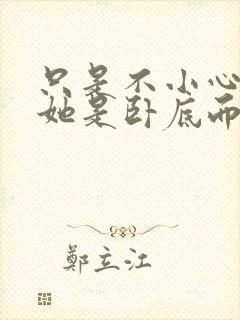 只是不小心
她是卧底而
鄭立江